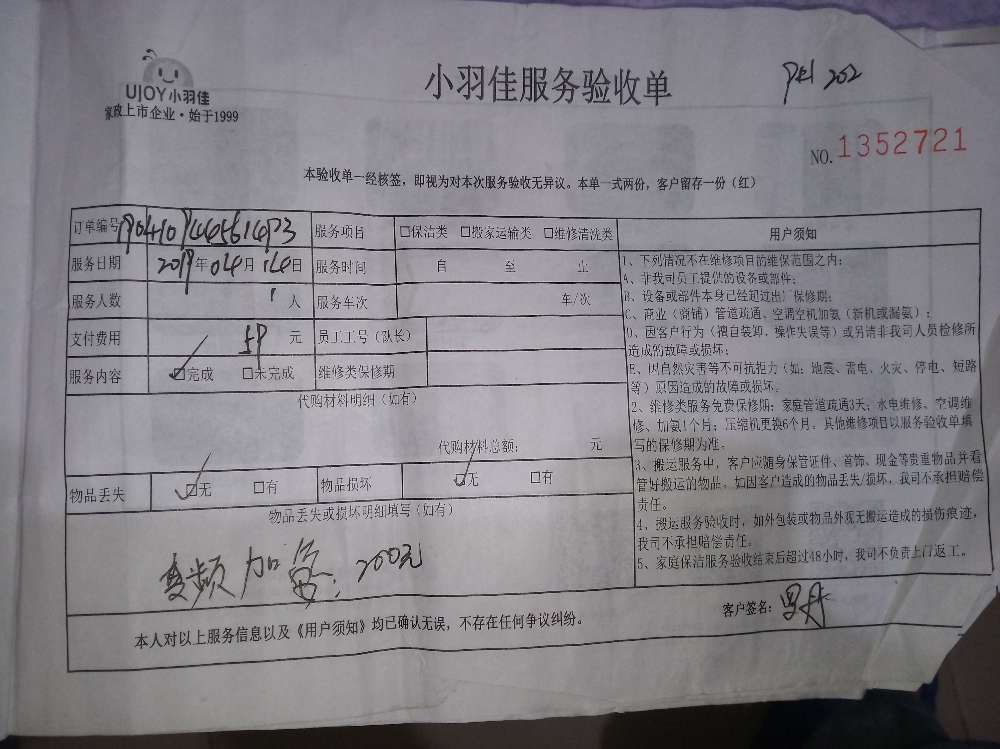 UJOY小羽佳
家政上市企业·始于1999
小羽佳服务验收单
202
NO. 1352721
本验收单一经核签，即视为对本次服务验收无异议。本单一式两份，客户留存一份（红）
订单编号 服务项目 □保洁类 □搬家运输类 □维修清洗类
服务日期 2019年04月14日 服务时间 自 至 止
服务人数 1 人 服务车次 车/次
支付费用 59 元 员工工号（队长）
服务内容 ☑完成 □未完成 维修类保修期
代购材料明细（如有）
代购材料总额： 元
物品丢失 ☑无 □有 物品损坏 ☑无 □有
物品丢失或损坏明细填写（如有）
变频加氨：200元
本人对以上服务信息以及《用户须知》均已确认无误，不存在任何争议纠纷。
客户签名：
用户须知
1、下列情况不在维修项目的维保范围之内：
A、非我司员工提供的设备或部件；
B、设备或部件本身已经超过出厂保修期；
C、商业（商铺）管道疏通、空调空机加氨（新机或漏氨）；
D、因客户行为（擅自装卸、操作失误等）或另请非我司人员检修所
造成的故障或损坏；
E、因自然灾害等不可抗拒力（如：地震、雷电、火灾、停电、短路
等）原因造成的故障或损坏。
2、维修类服务免费保修期：家庭管道疏通3天；水电维修、空调维
修、加氨1个月；压缩机更换6个月。其他维修项目以服务验收单填
写的保修期为准。
3、搬运服务中，客户应随身保管证件、首饰、现金等贵重物品并看
管好搬运的物品，如因客户造成的物品丢失/损坏，我司不承担赔偿
责任。
4、搬运服务验收时，如外包装或物品外观无搬运造成的损伤痕迹，
我司不承担赔偿责任。
5、家庭保洁服务验收结束后超过48小时，我司不负责上门返工。